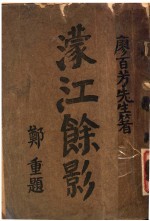 廖百芳先生著
濛江餘影
鄭重題